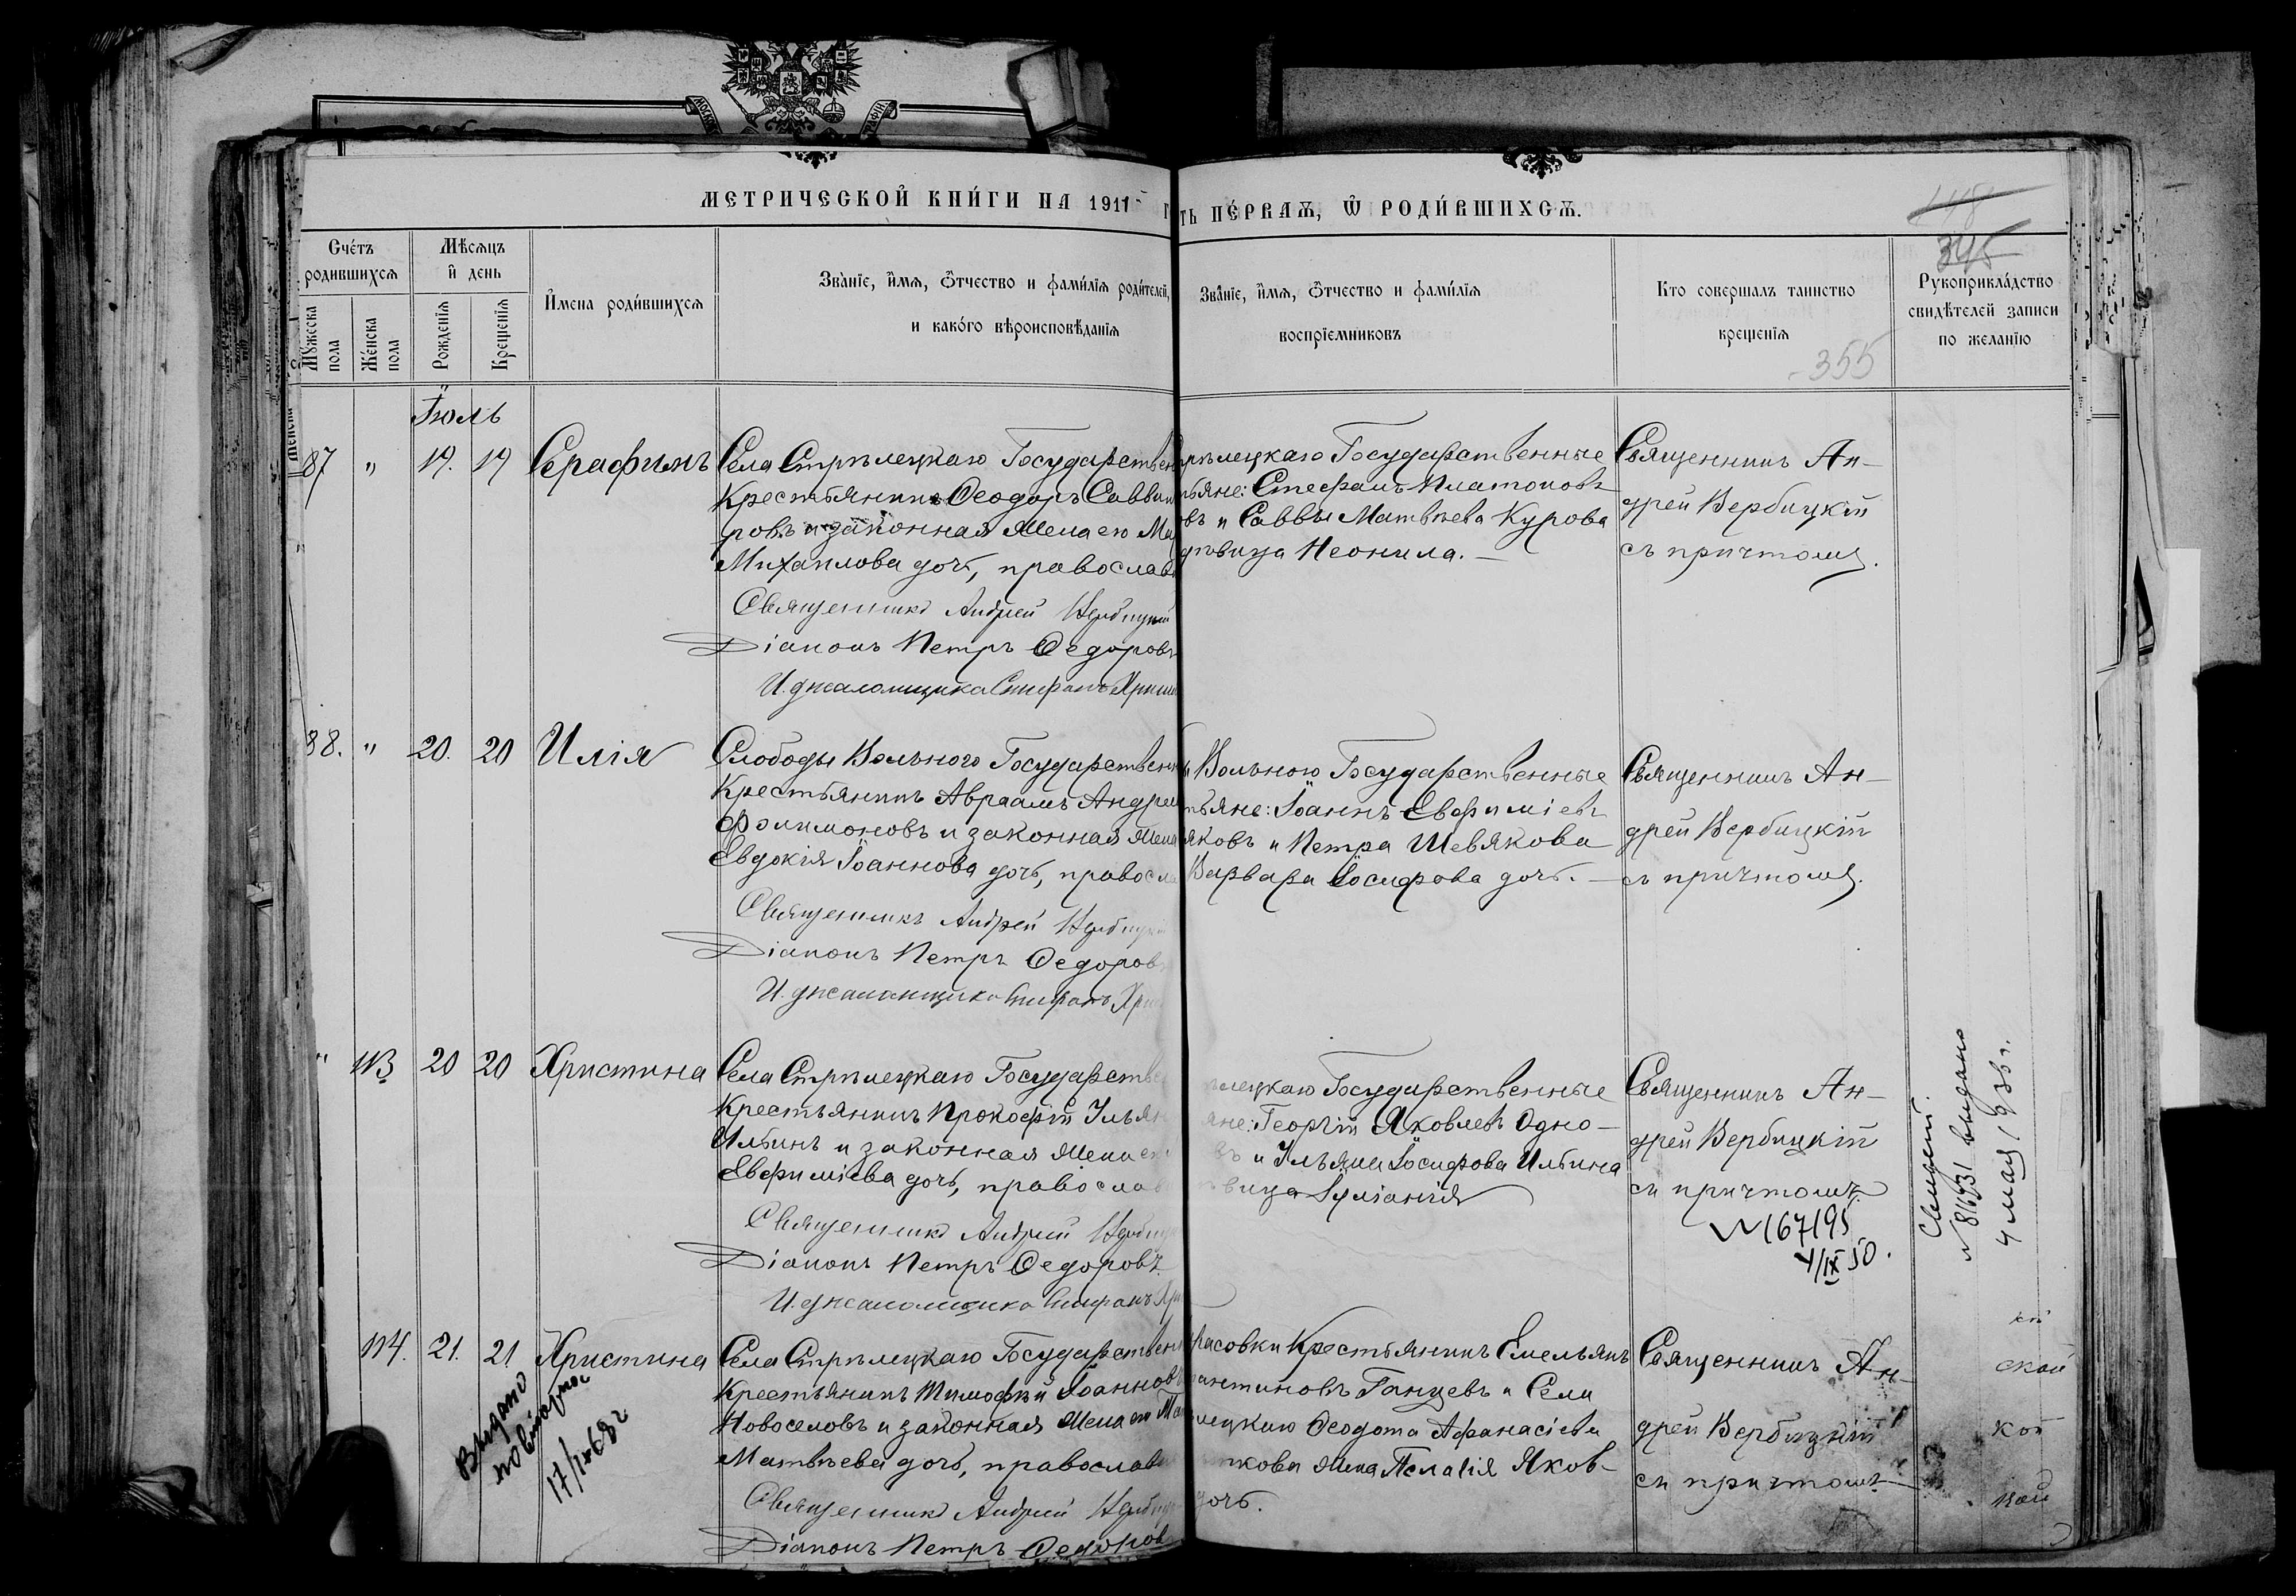 МЕТРИЧЕСКОЙ КНИ́ГИ НА 1911
ТЬ ПЕ́РВАѦ, Ѿ РОДИ́ВШИХСѦ.
345
Сче́тъ родившихсѧ
Мѣсѧцъ и҆ день
Мꙋжеска пола
Же́нска пола
Рожденїѧ
Крещенїѧ
И҆мена роди́вшихсѧ
Зва́нїе, и҆мѧ, ѻ҆тчество и фами́лїѧ роди́телей,
и како́го вѣроисповѣ́данїѧ
Зва́нїе, и҆мѧ, ѻ҆тчество и фами́лїѧ
воспрїемниковъ
Кто совершалъ таинство
крещенїѧ
355
Рꙋкоприкла́дство
свидѣ́телей записи
по желанїю
Іюль
87 " 19. 19 Серафимъ
Села Стрѣлецкаго Государствен
Крестьянинъ Ѳеодоръ Саввин
ровъ и законная жена его Ма
Михаилова дочь, православ
Священникъ Андрей Вербицкий
Діаконъ Петръ Ѳедоровъ
И. д. псаломщика Стефанъ
рѣлецкаго Государственные
тьяне: Стефанъ Платоновъ
овъ и Саввы Матвѣева Курова
дѣвица Неонила.
Священникъ Ан-
дрей Вербицкій
съ причтомъ.
88. " 20. 20 Илія
Слободы Вольного Государственн
Крестьянинъ Авраамъ Андрее
Филимоновъ и законная жена
Евдокія Іоаннова дочь, правосла
Священникъ Андрей Вербицкий
Діаконъ Петръ Ѳедоров
И. д. псаломщика Стефанъ
Вольного Государственные
тьяне: Іоаннъ Евфиміевъ
яковъ и Петра Шевякова
Варвара Іосифова дочь.
Священникъ Ан-
дрей Вербицкій
съ причтомъ.
" 113 20 20 Христина
Села Стрѣлецкаго Государстве
Крестьянинъ Прокофій Ульян
Ильинъ и законная жена ег
Евфиміева дочь, православ
Священникъ Андрей Вербиц
Діаконъ Петръ Ѳедоровъ
И. д. псаломщика Стефанъ
лецкаго Государственные
яне: Георгій Яковлевъ Одно-
въ и Ульяны Іосифова Ильина
вица Іуліанія
Священникъ Ан-
дрей Вербицкій
съ причтомъ.
№167195
4/IX 50.
выдано
4 мая
114. 21. 21 Христина
Выдано
повторное
Села Стрѣлецкаго Государствен
Крестьянинъ Тимофей Іоаннов
Новоселовъ и законная жена его
Матвѣева дочь, православ
Священникъ Андрей Вербиц
Діаконъ Петръ Ѳедоров
расовки Крестьянинъ Емельянъ
антиновъ Ганцевъ и Села
лецкаго Ѳеодота Афанасіева
кова жена Пелагія Яков-
дочь.
Священникъ Ан-
дрей Вербицкій
съ причтомъ
ской
кой